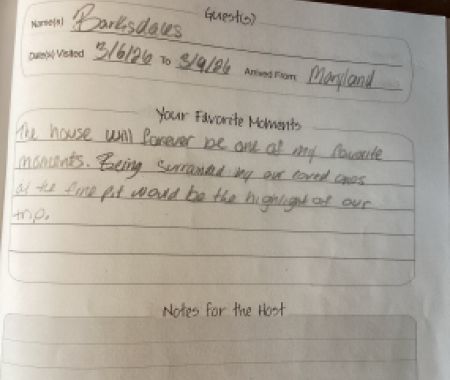 Guest(s)
Name(s) Barksdales
Date(s) Visited 3/6/26 To 3/9/26 Arrived From Maryland
Your Favorite Moments
The house will forever be one of my favorite
moments. Being surrounded by our loved ones
at the fire pit would be the highlight of our
trip.
Notes for the Host